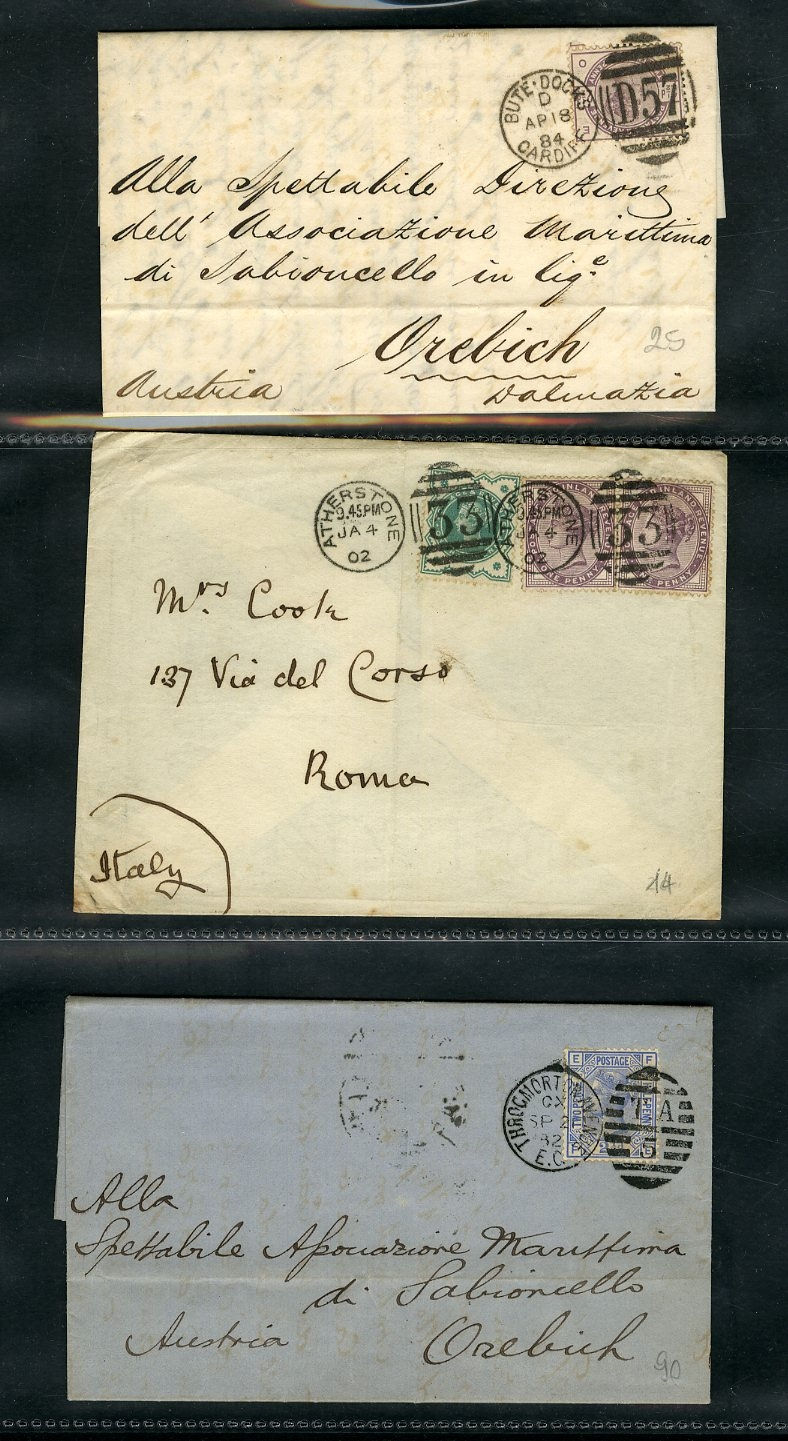 BUTE·DOCKS
D
AP 18
84
CARDIFF
D57
Alla Spettabile Direzione
dell' Associazione Marittima
di Sabioncello in liqe.
Orebich
25
Austria
Dalmazia
ATHERSTONE
9.45PM
JA 4
02
33
ATHERSTONE
9.45PM
JA 4
02
33
INLAND REVENUE
ONE PENNY
PENNY
Mrs. Cook
137 Via del Corso
Roma
Italy
44
E POSTAGE F
THROGMORTON AVENUE
CX
SP 2
82
E.C.
Alla
Spettabile Associazione Marittima
di Sabioncello
Austria
Orebich
90